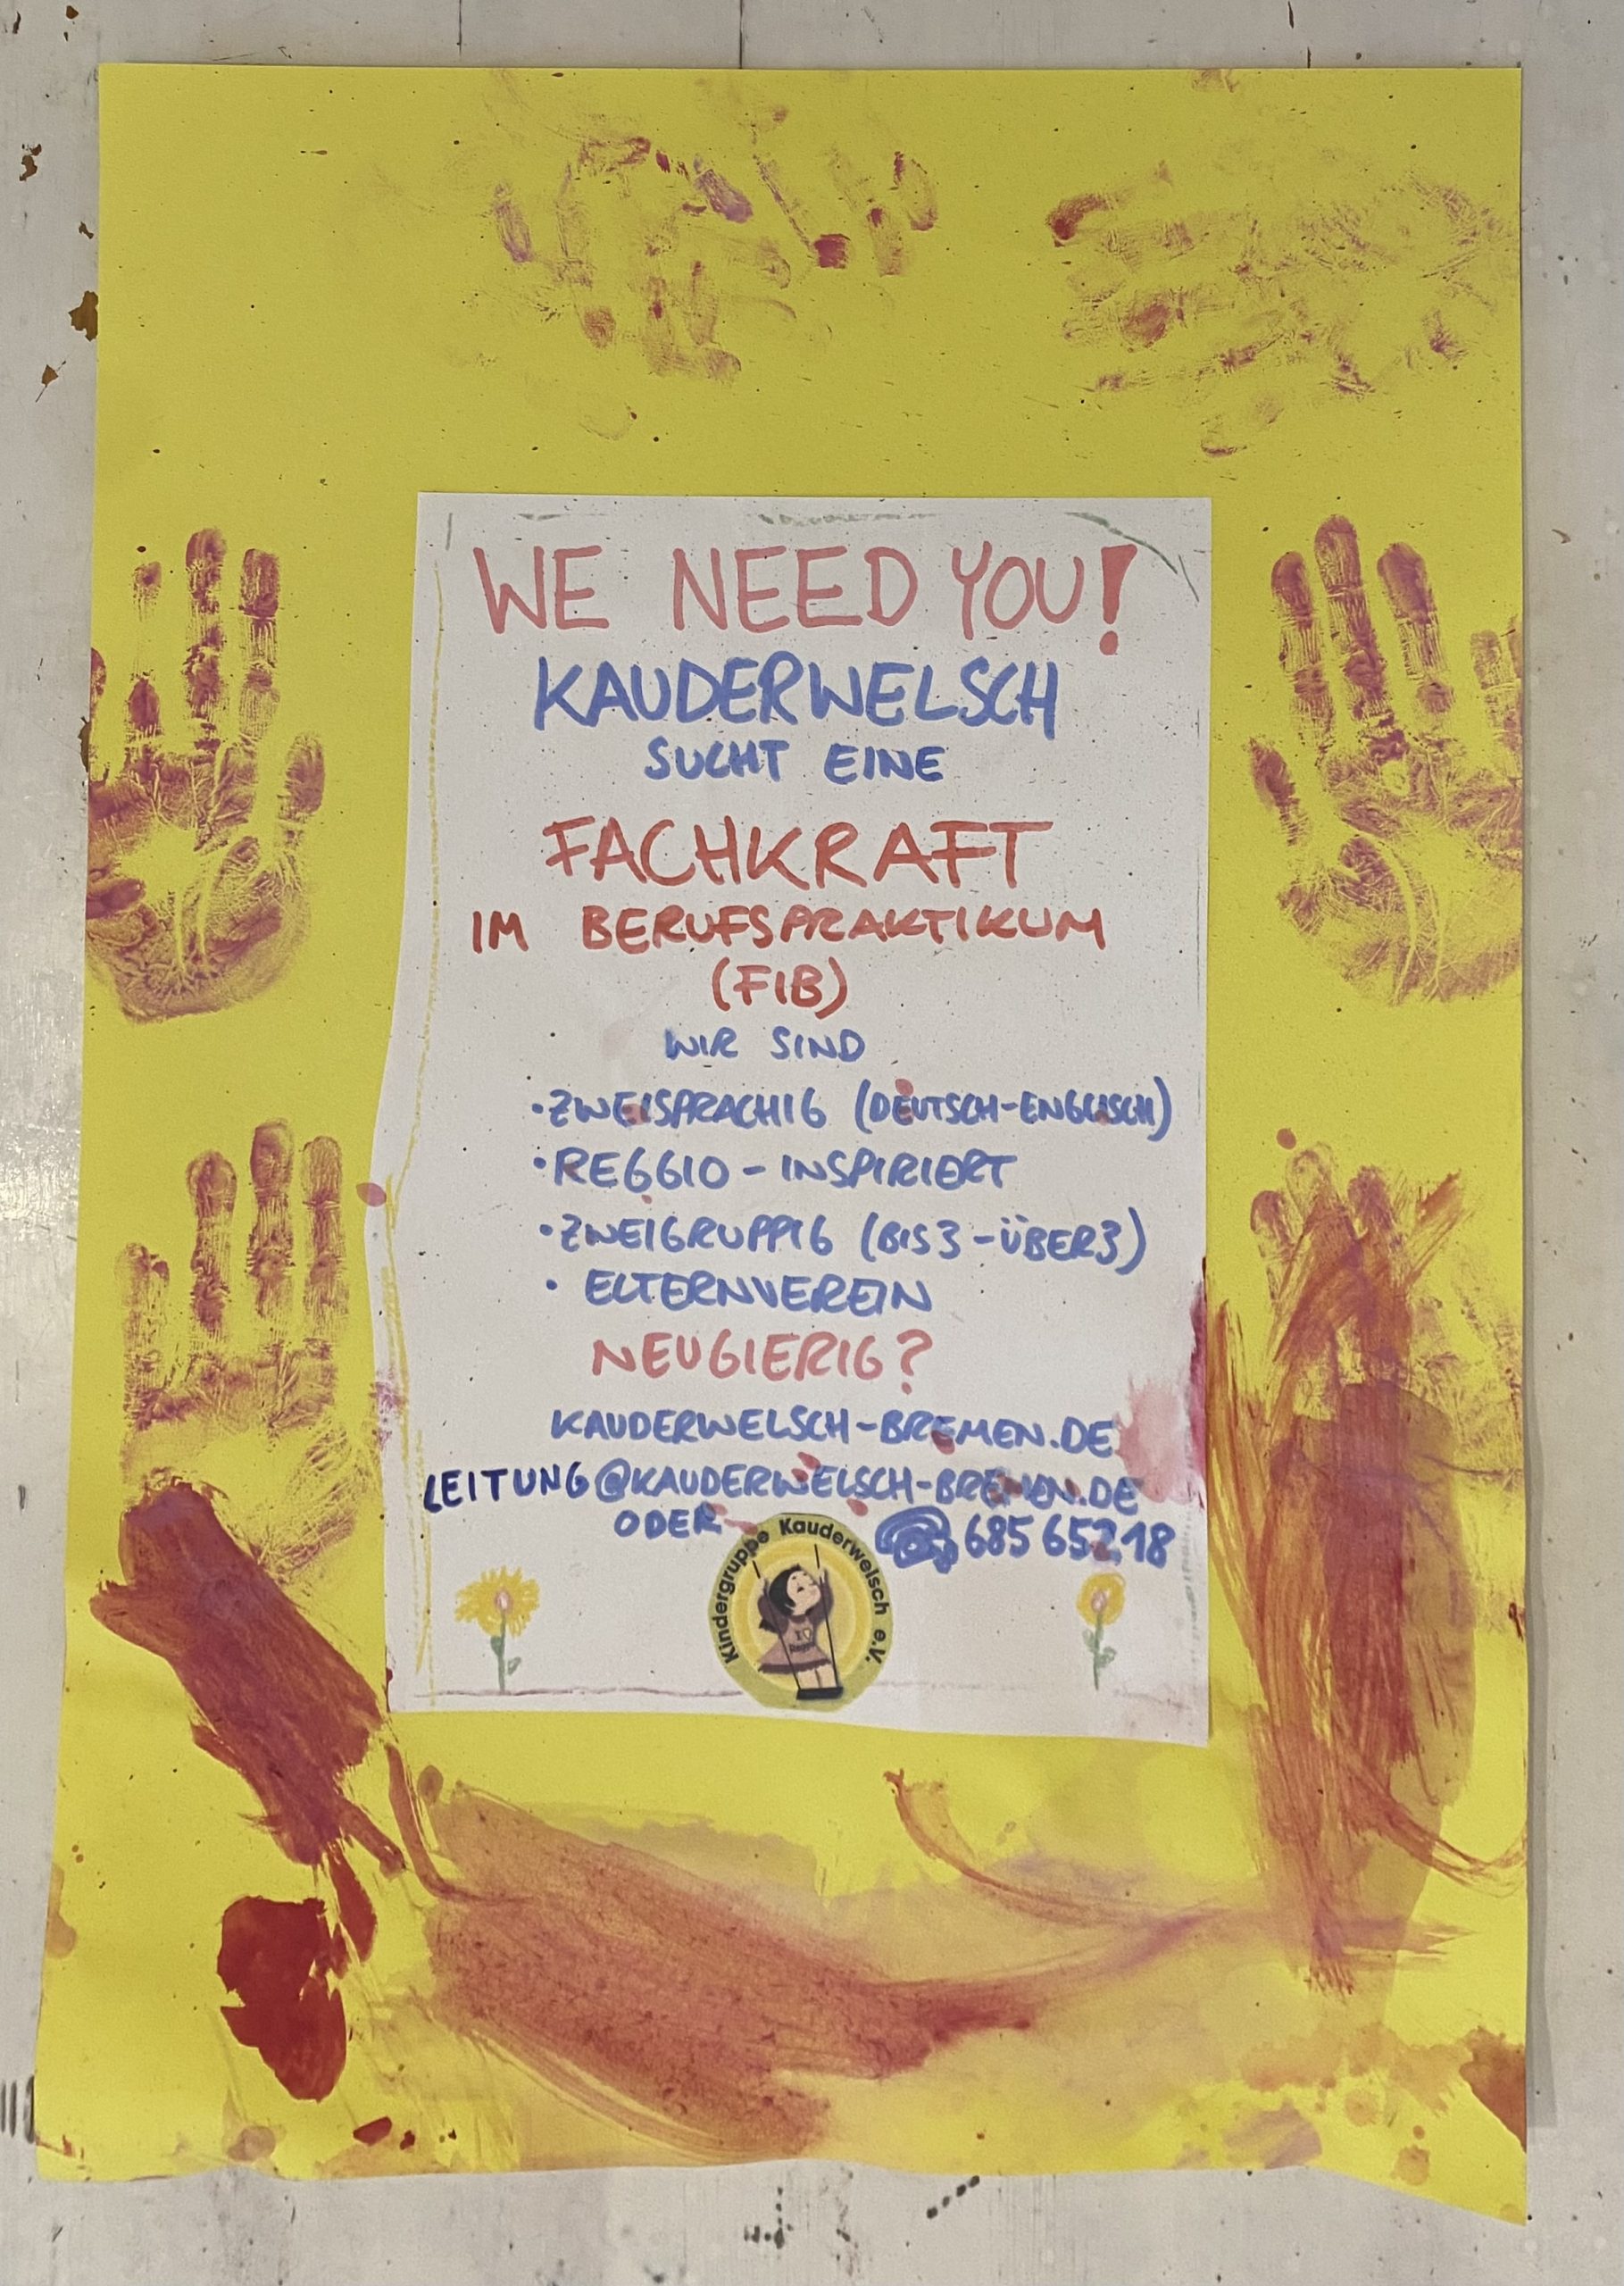 WE NEED YOU!
KAUDERWELSCH
SUCHT EINE
FACHKRAFT
IM BERUFSPRAKTIKUM
(FIB)
WIR SIND
• ZWEISPRACHIG (DEUTSCH-ENGLISCH)
• REGGIO - INSPIRIERT
• ZWEIGRUPPIG (BIS 3 - ÜBER 3)
• ELTERNVEREIN
NEUGIERIG?
KAUDERWELSCH-BREMEN.DE
LEITUNG@KAUDERWELSCH-BREMEN.DE
ODER ☎ 685 65218
Kindergruppe Kauderwelsch e.V.